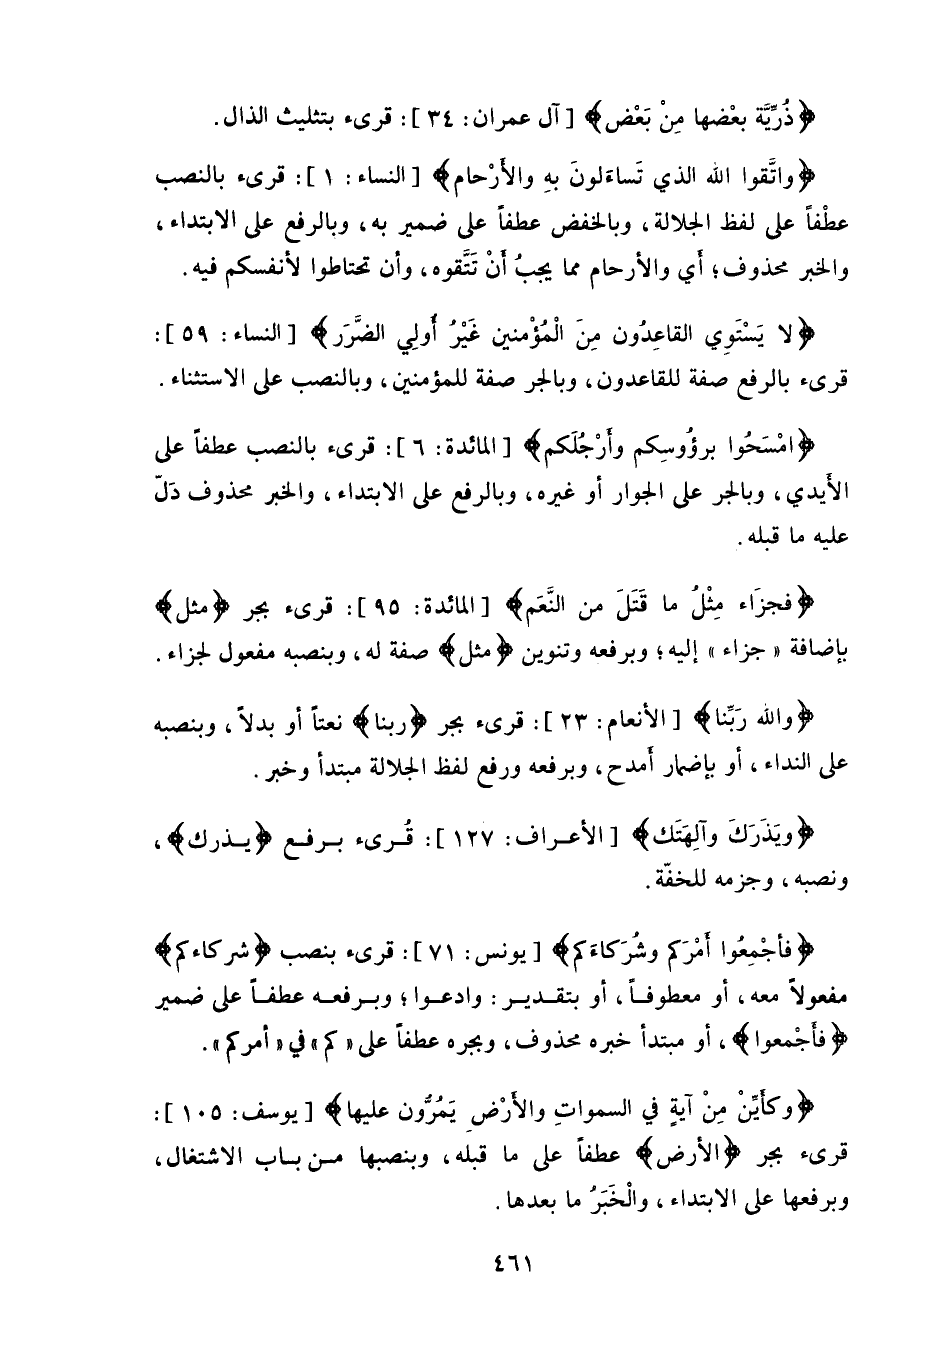 ﴿ذُرِّيَّة بعْضها مِنْ بَعْض﴾ [آل عمران: ٣٤]: قرىء بتثليث الذال.
﴿واتَّقوا الله الذي تَساءَلونَ بهِ والأَرْحام﴾ [النساء: ١]: قرىء بالنصب
عطْفاً على لفظ الجلالة، وبالخفض عطفاً على ضمير به، وبالرفع على الابتداء،
والخبر محذوف؛ أي والأرحام مما يجبُ أنْ تَتَّقوه، وأن تحتاطوا لأنفسكم فيه.
﴿لا يَسْتَوِي القاعِدُون مِنَ الْمُؤْمنين غَيْرُ أُولِي الضَّرَر﴾ [النساء: ٥٩]:
قرىء بالرفع صفة للقاعدون، وبالجر صفة للمؤمنين، وبالنصب على الاستثناء.
﴿امْسَحُوا برؤُوسِكم وأَرْجُلَكم﴾ [المائدة: ٦]: قرىء بالنصب عطفاً على
الأَيدي، وبالجر على الجوار أو غيره، وبالرفع على الابتداء، والخبر محذوف دَلّ
عليه ما قبله.
﴿فجزَاء مِثْلُ ما قَتَلَ من النَّعَم﴾ [المائدة: ٩٥]: قرىء بجر ﴿مثل﴾
بإضافة «جزاء» إليه؛ وبرفعه وتنوين ﴿مثل﴾ صفة له، وبنصبه مفعول لجزاء.
﴿والله رَبِّنا﴾ [الأنعام: ٢٣]: قرىء بجر ﴿ربنا﴾ نعتاً أو بدلاً، وبنصبه
على النداء، أو بإضمار أَمدح، وبرفعه ورفع لفظ الجلالة مبتدأ وخبر.
﴿ويَذَرَكَ وآلِهَتَك﴾ [الأعراف: ١٢٧]: قُرىء برفع ﴿يذرك﴾،
ونصبه، وجزمه للخفّة.
﴿فأجْمِعُوا أَمْرَكم وشُرَكاءَكم﴾ [يونس: ٧١]: قرىء بنصب ﴿شركاءكم﴾
مفعولاً معه، أو معطوفاً، أو بتقدير: وادعوا؛ وبرفعه عطفاً على ضمير
﴿فأَجْمعوا﴾، أو مبتدأ خبره محذوف، وبجره عطفاً على «كم» في «أمركم».
﴿وكأَيِّنْ مِنْ آيةٍ في السمواتِ والأَرْضِ يَمُرُّون عليها﴾ [يوسف: ١٠٥]:
قرىء بجر ﴿الأرض﴾ عطفاً على ما قبله، وبنصبها من باب الاشتغال،
وبرفعها على الابتداء، والْخَبَرُ ما بعدها.
٤٦١